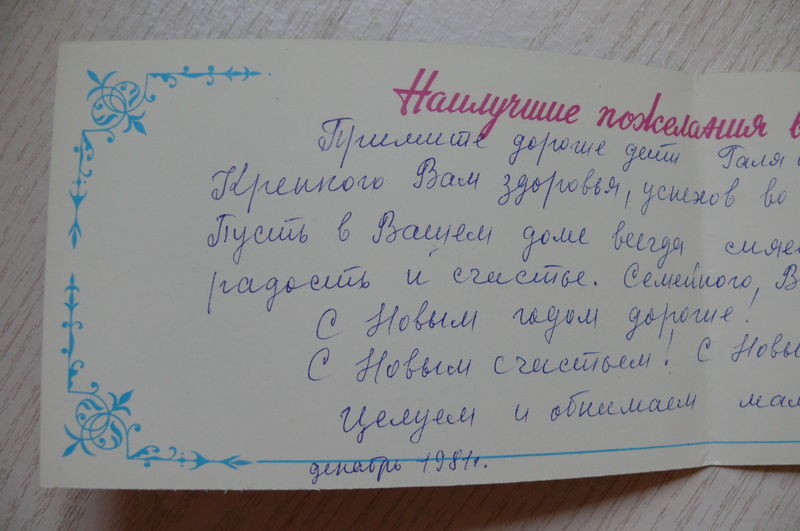 Наилучшие пожелания в
Примите дорогие дети Галя
Крепкого Вам здоровья, успехов во
Пусть в Вашем доме всегда
радость и счастье. Семейного, В
С Новым годом дорогие!
С Новым счастьем! С Новы
Целуем и обнимаем мам
декабрь 1981г.